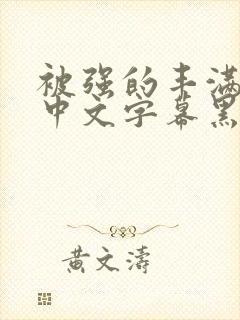 被强的丰满
中文字幕黑
黄文涛